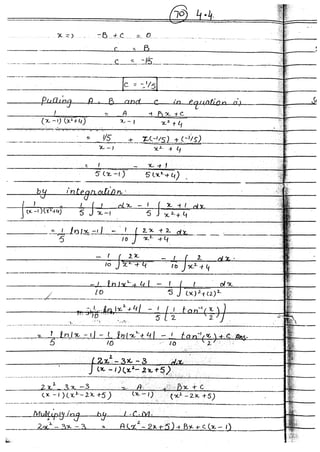 70 4.4
x => -B + C = 0
C = B
C = -1/5
C = -1/5
Putting A, B and C in equation i)
1/(x-1)(x²+4) = A/x-1 + Bx+C/x²+4
= 1/5/x-1 + x(-1/5)+(-1/5)/x²+4
= 1/5(x-1) - x+1/5(x²+4)
by integration
∫ 1/(x-1)(x²+4) = 1/5 ∫ 1/x-1 dx - 1/5 ∫ x+1/x²+4 dx
= 1/5 ln|x-1| - 1/10 ∫ 2x+2/x²+4 dx
- 1/10 ∫ 2x/x²+4 - 1/10 ∫ 2/x²+4 dx
- 1/10 ln|x²+4| - 1/5 ∫ dx/(x)²+(2)²
- 1/10 ln|x²+4| - 1/5 [1/2 tan⁻¹(x/2)]
= 1/5 ln|x-1| - 1/10 ln|x²+4| - 1/10 tan⁻¹(x/2) + c Ans
∫ 2x²-3x-3/(x-1)(x²-2x+5) dx
2x²-3x-3/(x-1)(x²-2x+5) = A/(x-1) + Bx+C/(x²-2x+5)
Multiplying by L.C.M.
2x²-3x-3 = A(x²-2x+5)+Bx+c(x-1)